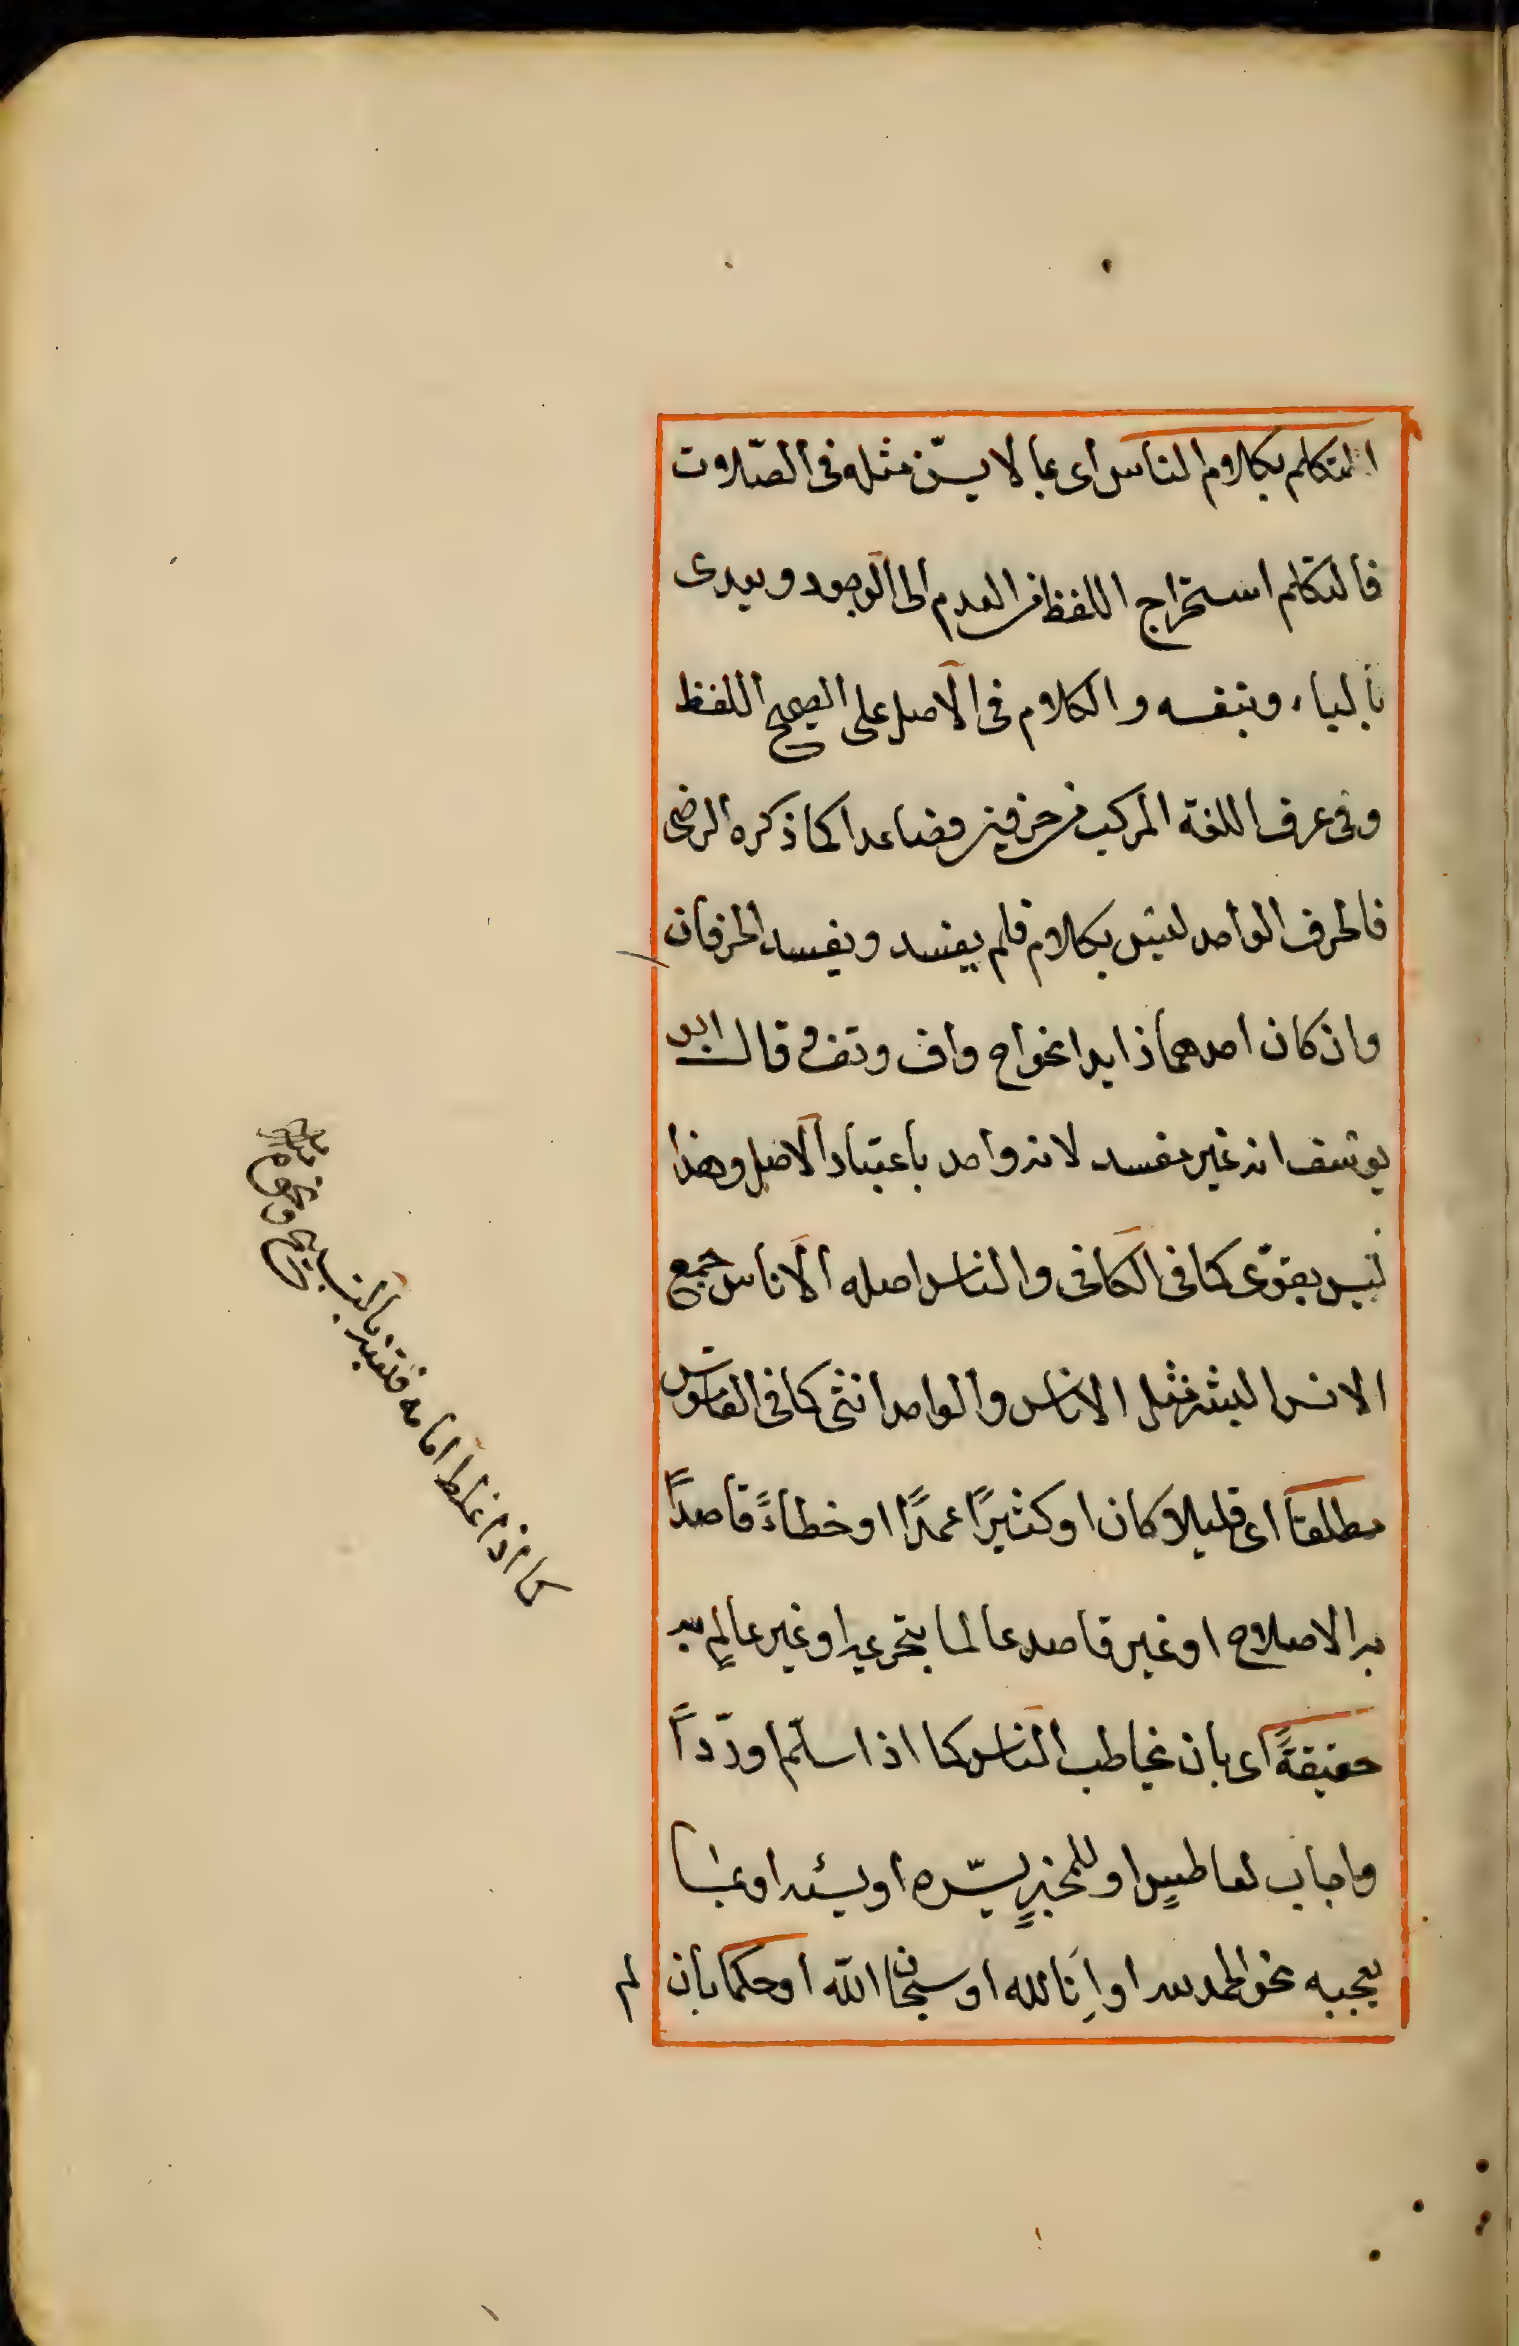 التكلم بكلام الناس اى بما لا يسنّ مثله فى الصّلاوت
فالتكلم استخراج اللفظ من العدم الى الوجود ويعدى
بالباء وبنفسه والكلام فى الاصل على الصحيح اللفظ
وفى عرف اللغة المركب من حرفين فصاعدا كما ذكره الرضى
فالحرف الواحد ليس بكلام فلم يفسد ويفسد الحرفان
وان كان احدهما زايدا نحو اح واف وتف وقال ابو
يوسف انه غير مفسد لانه واحد باعتبار الاصل وهذا
ليس بقوى كما فى الكافى والناس اصله الاناس جمع
الانس البشر مثل الاناس والواحد انثى كما فى القاموس
مطلقا اى قليلا كان او كثيرًا عمدًا او خطاءً قاصدًا
به الاصلاح او غير قاصد عالما بتحريمه او غير عالمٍ به
حقيقةً اى بان يخاطب الناس كما اذا سلّم او ردّ داً
واجاب لعاطسٍ او للمخبرٍ يسّره او يسئه او بما
يعجبه نحو الحمد لله او اِنا لله او سبحان الله او حكما بان
لم
كما اذا غلط امامه فنبّه بالتسبيح ونحوه م